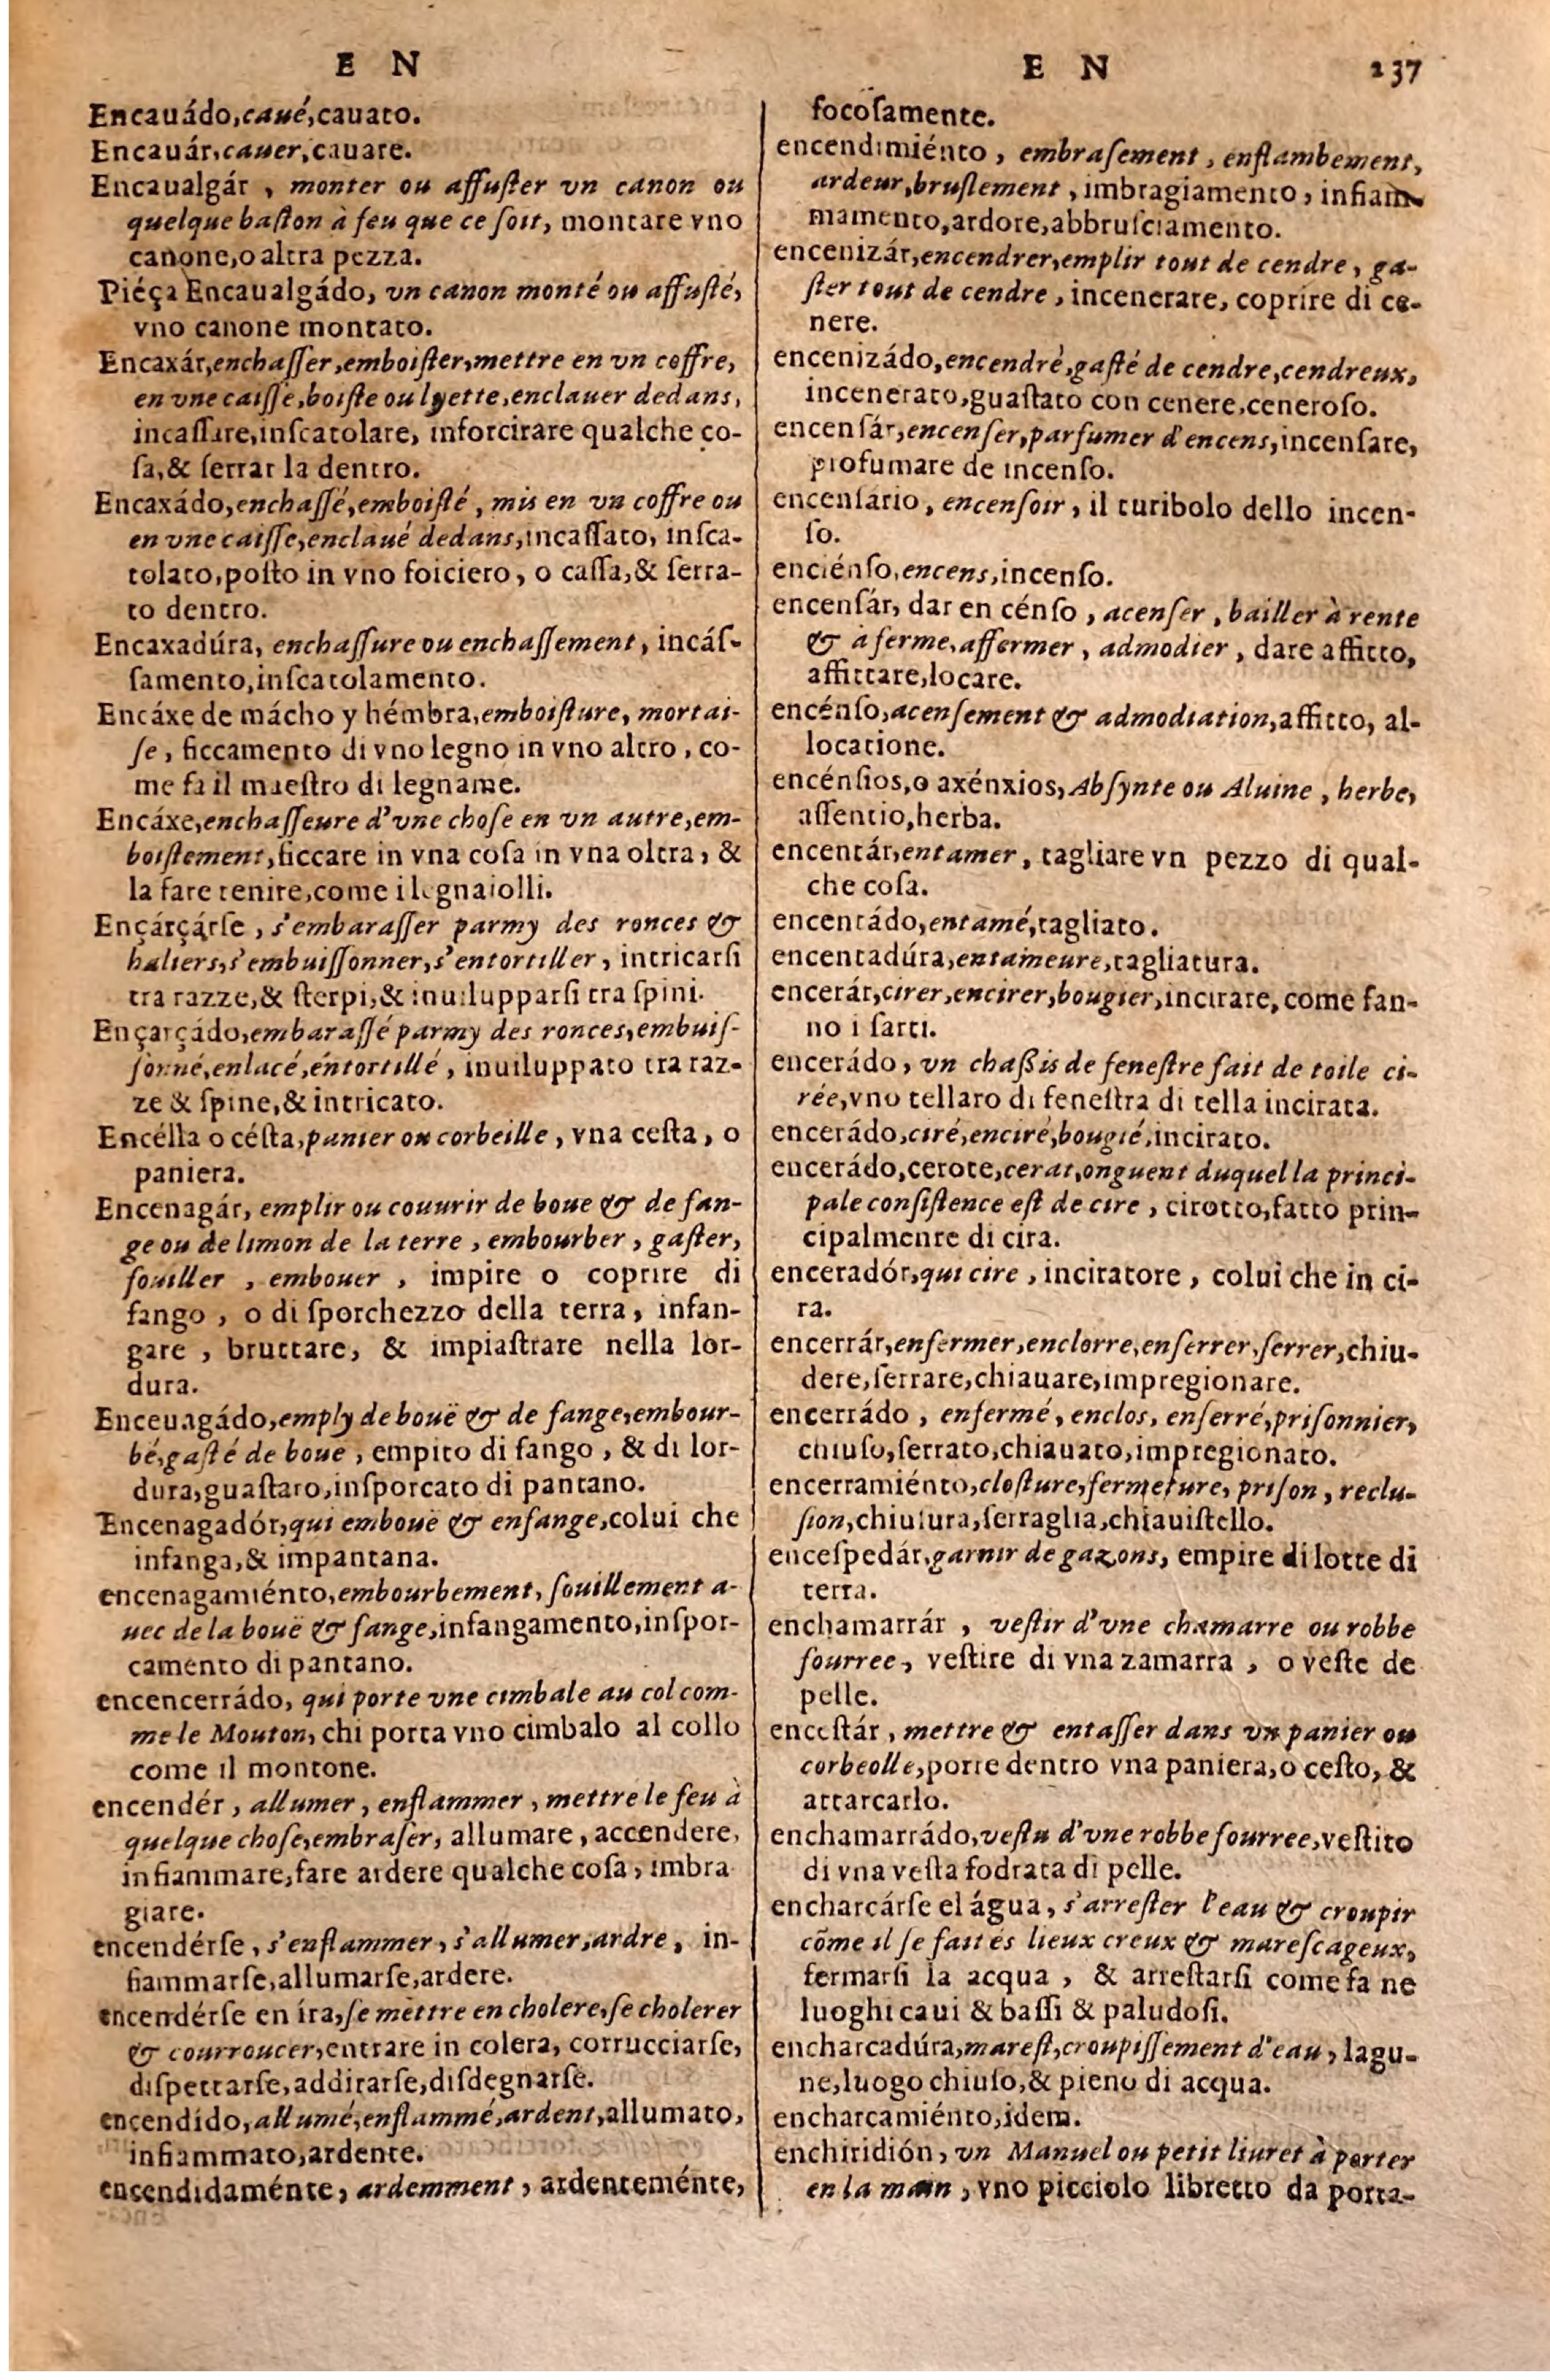 E N
Encauádo,caué,cauato.
Encauár,cauer,cauare.
Encaualgár , monter ou affuſter vn canon ou
quelque baſton à feu que ce ſoit, montare vno
canone,o altra pezza.
Piéça Encaualgádo, vn canon monté ou affuſté,
vno canone montato.
Encaxár,enchaſſer,emboiſter,mettre en vn coffre,
en vne caiſſe,boiſte ou lyette,enclauer dedans,
incaſſare,inſcatolare, inforcirare qualche co-
ſa,& ſerrar la dentro.
Encaxádo,enchaſſé,emboiſté , mis en vn coffre ou
en vne caiſſe,enclaué dedans,incaſſato, inſca-
tolato,poſto in vno foiciero, o caſſa,& ſerra-
to dentro.
Encaxadúra, enchaſſure ou enchaſſement , incáſ-
ſamento,inſcatolamento.
Encáxe de mácho y hémbra,emboiſture, mortai-
ſe , ficcamento di vno legno in vno altro , co-
me fa il maeſtro di legname.
Encáxe,enchaſſeure d'vne choſe en vn autre,em-
boiſtement,ficcare in vna coſa in vna oltra, &
la fare tenire,come i legnaiolli.
Ençárçárſe , s'embaraſſer parmy des ronces &
haliers,s'embuiſſonner,s'entortiller , intricarſi
tra razze,& ſterpi,& inuilupparſi tra ſpini.
Ençarçádo,embaraſſé parmy des ronces,embuiſ-
ſonné,enlacé,éntortillé , inuiluppato tra raz-
ze & ſpine,& intricato.
Encélla o céſta,panier ou corbeille , vna ceſta , o
paniera.
Encenagár, emplir ou couurir de boue & de fan-
ge ou de limon de la terre , embourber , gaſter,
ſouiller , embouer , impire o coprire di
fango , o di ſporchezzo della terra, infan-
gare , bruttare, & impiaſtrare nella lor-
dura.
Enceuagádo,emply de bouë & de fange,embour-
bé,gaſté de boue , empito di fango , & di lor-
dura,guaſtaro,inſporcato di pantano.
Encenagadór,qui embouë & enfange,colui che
infanga,& impantana.
encenagamiénto,embourbement, ſouillement a-
uec de la bouë & fange,infangamento,inſpor-
camento di pantano.
encencerrádo, qui porte vne cimbale au col com-
me le Mouton, chi porta vno cimbalo al collo
come il montone.
encendér , allumer , enflammer , mettre le feu à
quelque choſe,embraſer, allumare , accendere,
infiammare,fare ardere qualche coſa, imbra
giare.
encendérſe , s'enflammer , s'allumer,ardre , in-
fiammarſe,allumarſe,ardere.
encendérſe en íra,ſe mettre en cholere,ſe cholerer
& courroucer,entrare in colera, corrucciarſe,
diſpettarſe,addirarſe,diſdegnarſe.
encendído,allumé,enflammé,ardent,allumato,
infiammato,ardente.
encendidaménte, ardemment , ardenteménte,
E N 237
focoſamente.
encendimiénto , embraſement , enflambement,
ardeur,bruſlement , imbragiamento, infiam-
mamento,ardore,abbruſciamento.
encenizár,encendrer,emplir tout de cendre , ga-
ſter tout de cendre , incenerare, coprire di ce-
nere.
encenizádo,encendré,gaſté de cendre,cendreux,
incenerato,guaſtato con cenere,ceneroſo.
encenſár,encenſer,parfumer d'encens,incenſare,
profumare de incenſo.
encenſário , encenſoir , il turibolo dello incen-
ſo.
enciénſo,encens,incenſo.
encenſár, dar en cénſo , acenſer , bailler à rente
& à ferme,affermer , admodier , dare affitto,
affittare,locare.
encénſo,acenſement & admodiation,affitto, al-
locatione.
encénſios,o axénxios,Abſynte ou Aluine , herbe,
aſſentio,herba.
encentár,entamer , tagliare vn pezzo di qual-
che coſa.
encentádo,entamé,tagliato.
encentadúra,entameure,tagliatura.
encerár,cirer,encirer,bougier,incirare, come fan-
no i ſarti.
encerádo , vn chaßis de feneſtre fait de toile ci-
rée,vno tellaro di feneſtra di tella incirata.
encerádo,ciré,enciré,bougié,incirato.
encerádo,cerote,cerat,onguent duquel la princi-
pale conſiſtence eſt de cire , cirotto,fatto prin-
cipalmente di cira.
enceradór,qui cire , inciratore , colui che in ci-
ra.
encerrár,enfermer,enclorre,enſerrer,ſerrer,chiu-
dere,ſerrare,chiauare,impregionare.
encerrádo , enfermé, enclos, enſerré,priſonnier,
chiuſo,ſerrato,chiauato,impregionato.
encerramiénto,cloſture,fermeture, priſon , reclu-
ſion,chiuſura,ſerraglia,chiauiſtello.
enceſpedár,garnir de gazons, empire di lotte di
terra.
enchamarrár , veſtir d'vne chamarre ou robbe
fourree, veſtire di vna zamarra , o veſte de
pelle.
enceſtár , mettre & entaſſer dans vn panier ou
corbeolle,porre dentro vna paniera,o ceſto, &
attarcarlo.
enchamarrádo,veſtu d'vne robbe fourree,veſtito
di vna veſta fodrata di pelle.
encharcárſe el água , s'arreſter l'eau & croupir
cõme il ſe fait és lieux creux & mareſcageux,
fermarſi la acqua , & arreſtarſi come fa ne
luoghi caui & baſſi & paludoſi.
encharcadúra,mareſt,croupiſſement d'eau , lagu-
ne,luogo chiuſo,& pieno di acqua.
encharcamiénto,idem.
enchiridión, vn Manuel ou petit liuret à porter
en la main , vno picciolo libretto da porta-